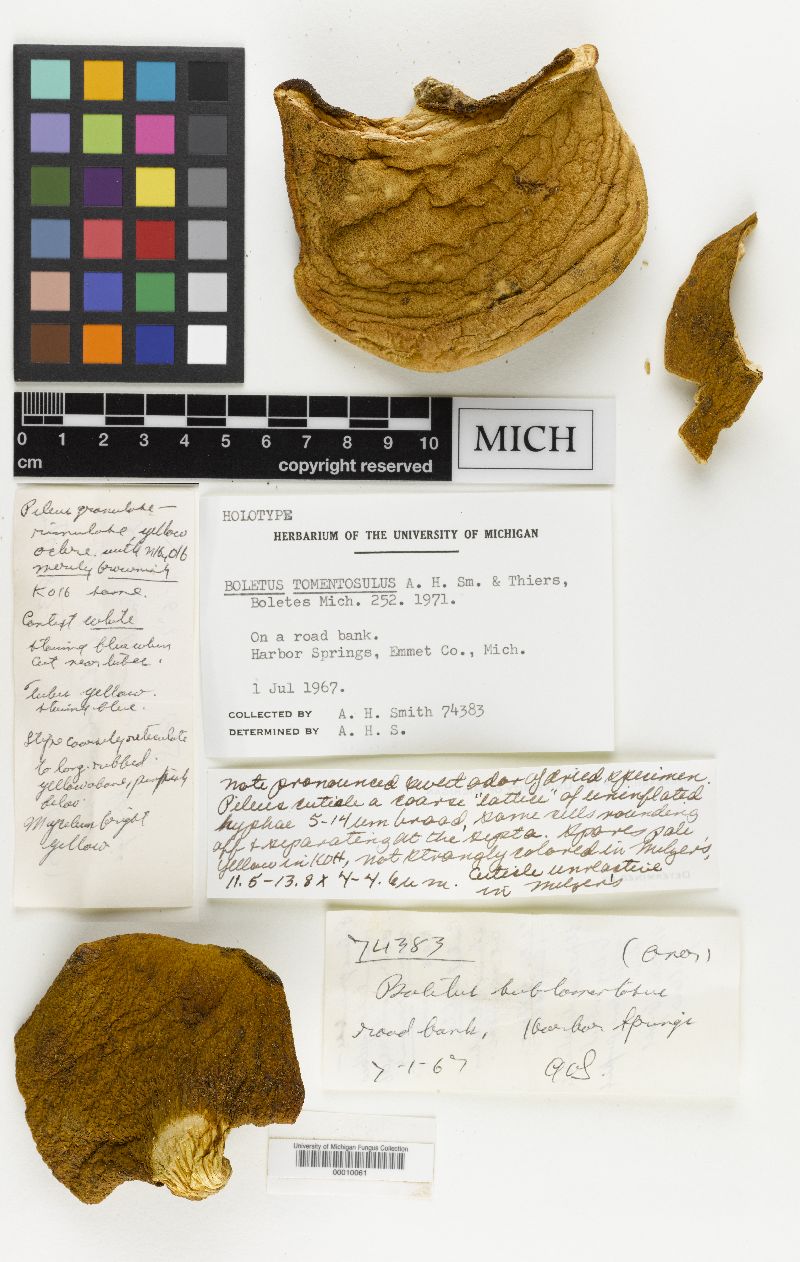 0 1 2 3 4 5 6 7 8 9 10
cm
copyright reserved
MICH
Pileus granulose —
rimulose, yellow
ochre. with
merely browning
KOH same.
Context white
staining blue when
cut near tubes.
Tubes yellow.
staining blue.
Stipe coarsely reticulate
to long-ribbed.
yellow above,
below
Mycelium bright
yellow
HOLOTYPE
HERBARIUM OF THE UNIVERSITY OF MICHIGAN
BOLETUS TOMENTOSULUS A. H. Sm. & Thiers,
Boletes Mich. 252. 1971.
On a road bank.
Harbor Springs, Emmet Co., Mich.
1 Jul 1967.
COLLECTED BY A. H. Smith 74383
DETERMINED BY A. H. S.
note pronounced sweet odor of dried specimen.
Pileus cuticle a coarse "lattice" of uninflated
hyphae 5-14 µm broad, some cells rounding
off & separating at the septa. Spores pale
yellow in KOH, not strongly colored in Melzer's,
11.5-13.8 x 4-4.6 µm. Cuticle unreactive
in Melzer's
74383
Boletus subtomentosus
road bank, Harbor Springs
7-1-67 AHS.
University of Michigan Fungus Collection
00010061